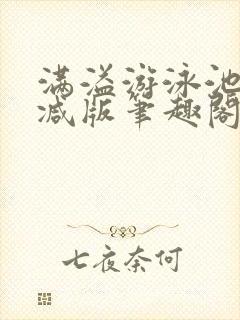 满溢游泳池
减版笔趣阁
七夜奈何